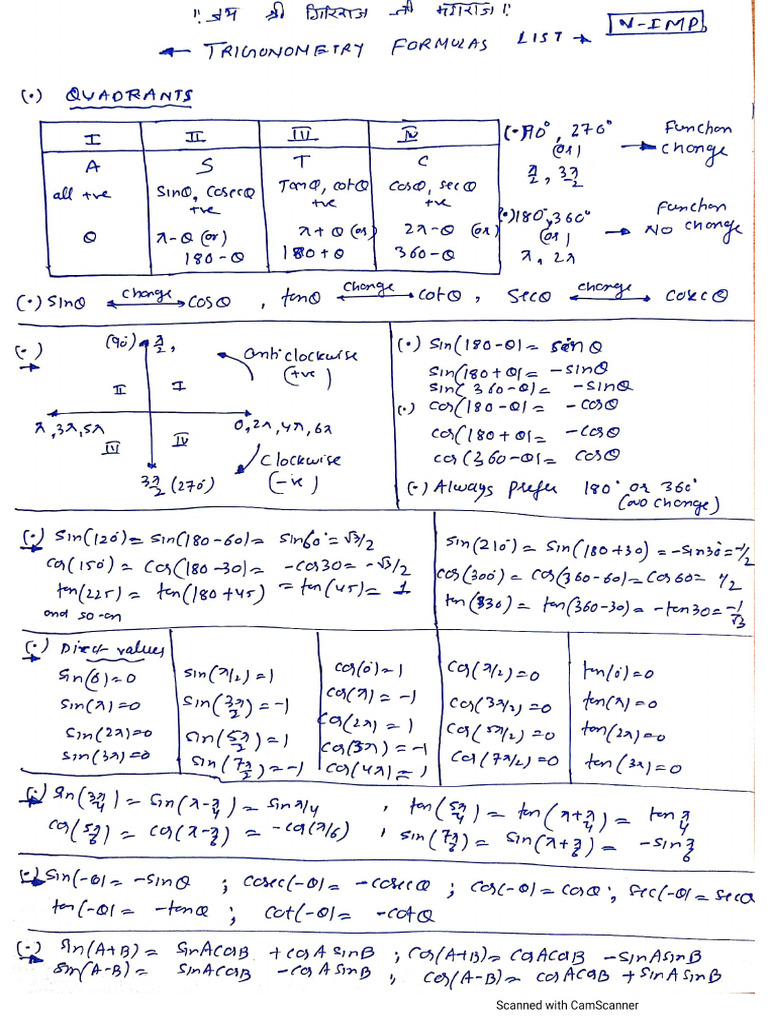 "जय श्री गिरिराज जी महाराज"
← TRIGONOMETRY FORMULAS LIST → N-IMP
(•) QUADRANTS
I II IV IV
A S T C
all +ve sinθ, cosecθ +ve Tanθ, cotθ +ve cosθ, secθ +ve
θ π-θ (or) 180-θ π+θ (or) 180+θ 2π-θ (or) 360-θ
(•) 90°, 270° (or) π/2, 3π/2 → Function change
(•) 180°, 360° (or) π, 2π → Function No change
(•) sinθ ←change→ cosθ , tanθ ←change→ cotθ , secθ ←change→ cosecθ
(•) →
(90°) π/2,
Anticlockwise (+ve)
II I
π, 3π, 5π 0, 2π, 4π, 6π
IV IV
Clockwise (-ve)
3π/2 (270°)
(•) sin(180-θ) = sinθ
sin(180+θ) = -sinθ
sin(360-θ) = -sinθ
(•) cos(180-θ) = -cosθ
cos(180+θ) = -cosθ
cos(360-θ) = cosθ
(•) Always prefer 180° or 360°
(no change)
(•) → sin(120) = sin(180-60) = sin60° = √3/2
cos(150) = cos(180-30) = -cos30 = -√3/2
tan(225) = tan(180+45) = tan(45) = 1
and so-on
sin(210) = sin(180+30) = -sin30 = -1/2
cos(300) = cos(360-60) = cos60 = 1/2
tan(330) = tan(360-30) = -tan30 = -1/√3
(•) → Direct values
sin(0) = 0 sin(π/2) = 1 cos(0) = 1 cos(π/2) = 0 tan(0) = 0
sin(π) = 0 sin(3π/2) = -1 cos(π) = -1 cos(3π/2) = 0 tan(π) = 0
sin(2π) = 0 sin(5π/2) = 1 cos(2π) = 1 cos(5π/2) = 0 tan(2π) = 0
sin(3π) = 0 sin(7π/2) = -1 cos(3π) = -1 cos(7π/2) = 0 tan(3π) = 0
cos(4π) = 1
(•) → sin(3π/4) = sin(π-π/4) = sinπ/4 , tan(5π/4) = tan(π+π/4) = tan π/4
cos(5π/6) = cos(π-π/6) = -cos(π/6) , sin(7π/6) = sin(π+π/6) = -sin π/6
(•) → sin(-θ) = -sinθ ; cosec(-θ) = -cosecθ ; cos(-θ) = cosθ ; sec(-θ) = secθ
tan(-θ) = -tanθ ; cot(-θ) = -cotθ
(•) → sin(A+B) = sinAcosB + cosAsinB ; cos(A+B) = cosAcosB - sinAsinB
sin(A-B) = sinAcosB - cosAsinB , cos(A-B) = cosAcosB + sinAsinB
Scanned with CamScanner